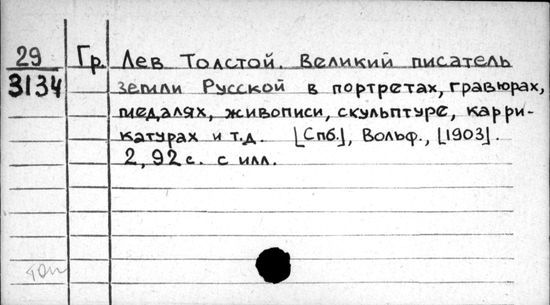 29 Гр. Лев Толстой. Великий писатель
3134 земли Русской в портретах, гравюрах,
медалях, живописи, скульптуре, карри-
катурах и т.д. [Спб.], Вольф., [1903].
2, 92 с. с илл.